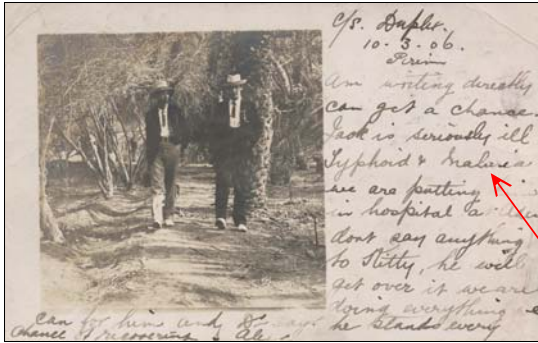 c/s. Duplex.
10-3-06.
Perim
Am writing directly
can get a chance.
Jack is seriously ill
Typhoid & Malaria
we are putting
in hospital a
dont say anything
to Kitty, he will
get over it we are
doing everything we
can for him and Dr says he stands every
chance of recovering